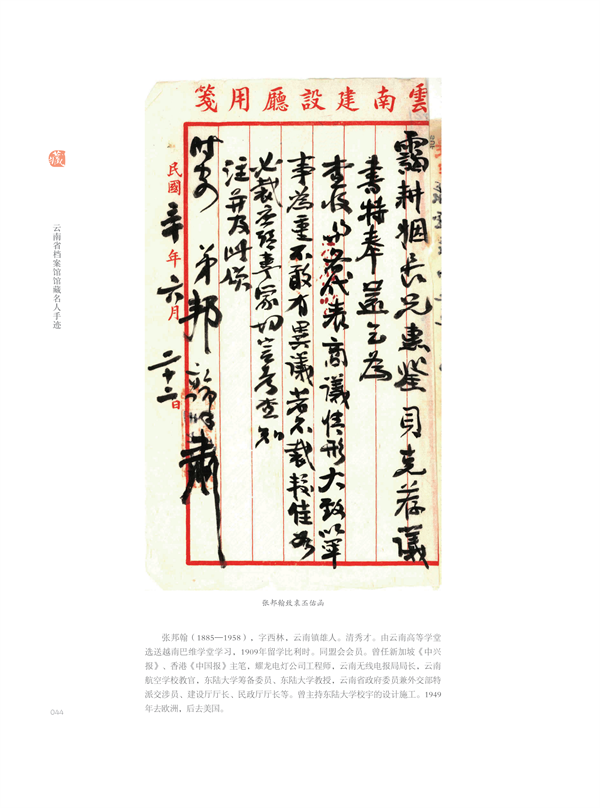 雲南建設廳用箋
靄耕姻長兄惠鑒 貝克荐議
書特奉 還乞為
查收 與各代表商議情形大致以軍
事為重不敢有異議 若不裁
必裁 專家 查知
注 并及此候
时安 弟邦翰 肅
民國 年六月二十二日
张邦翰致袁丕佑函
张邦翰（1885—1958），字西林，云南镇雄人。清秀才。由云南高等学堂
选送越南巴维学堂学习，1909年留学比利时。同盟会会员。曾任新加坡《中兴
报》、香港《中国报》主笔，耀龙电灯公司工程师，云南无线电报局局长，云南
航空学校教官，东陆大学筹备委员、东陆大学教授，云南省政府委员兼外交部特
派交涉员、建设厅厅长、民政厅厅长等。曾主持东陆大学校宇的设计施工。1949
年去欧洲，后去美国。
藏
云南省档案馆馆藏名人手迹
044